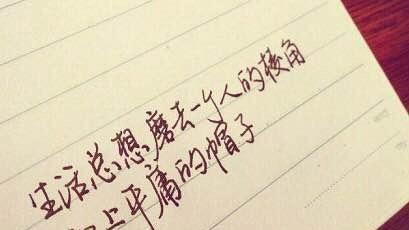 生活总想磨去一个人的棱角
上平庸的帽子